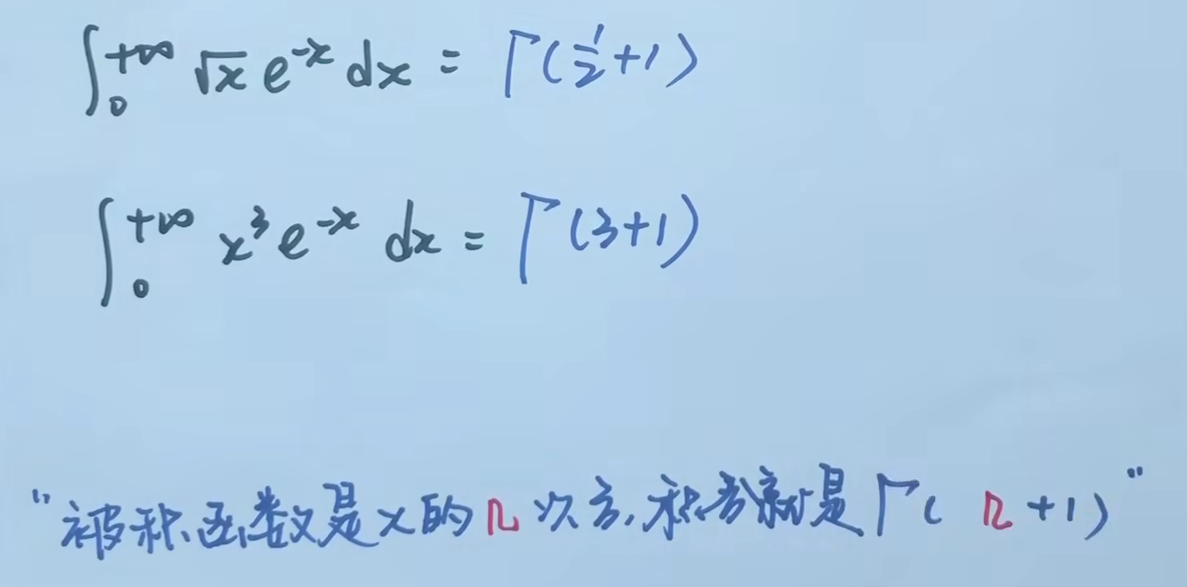 ∫₀^{+∞} √x e^{-x} dx = Γ(1/2+1)
∫₀^{+∞} x³ e^{-x} dx = Γ(3+1)
"被积函数是x的n次方,积分就是Γ(n+1)"